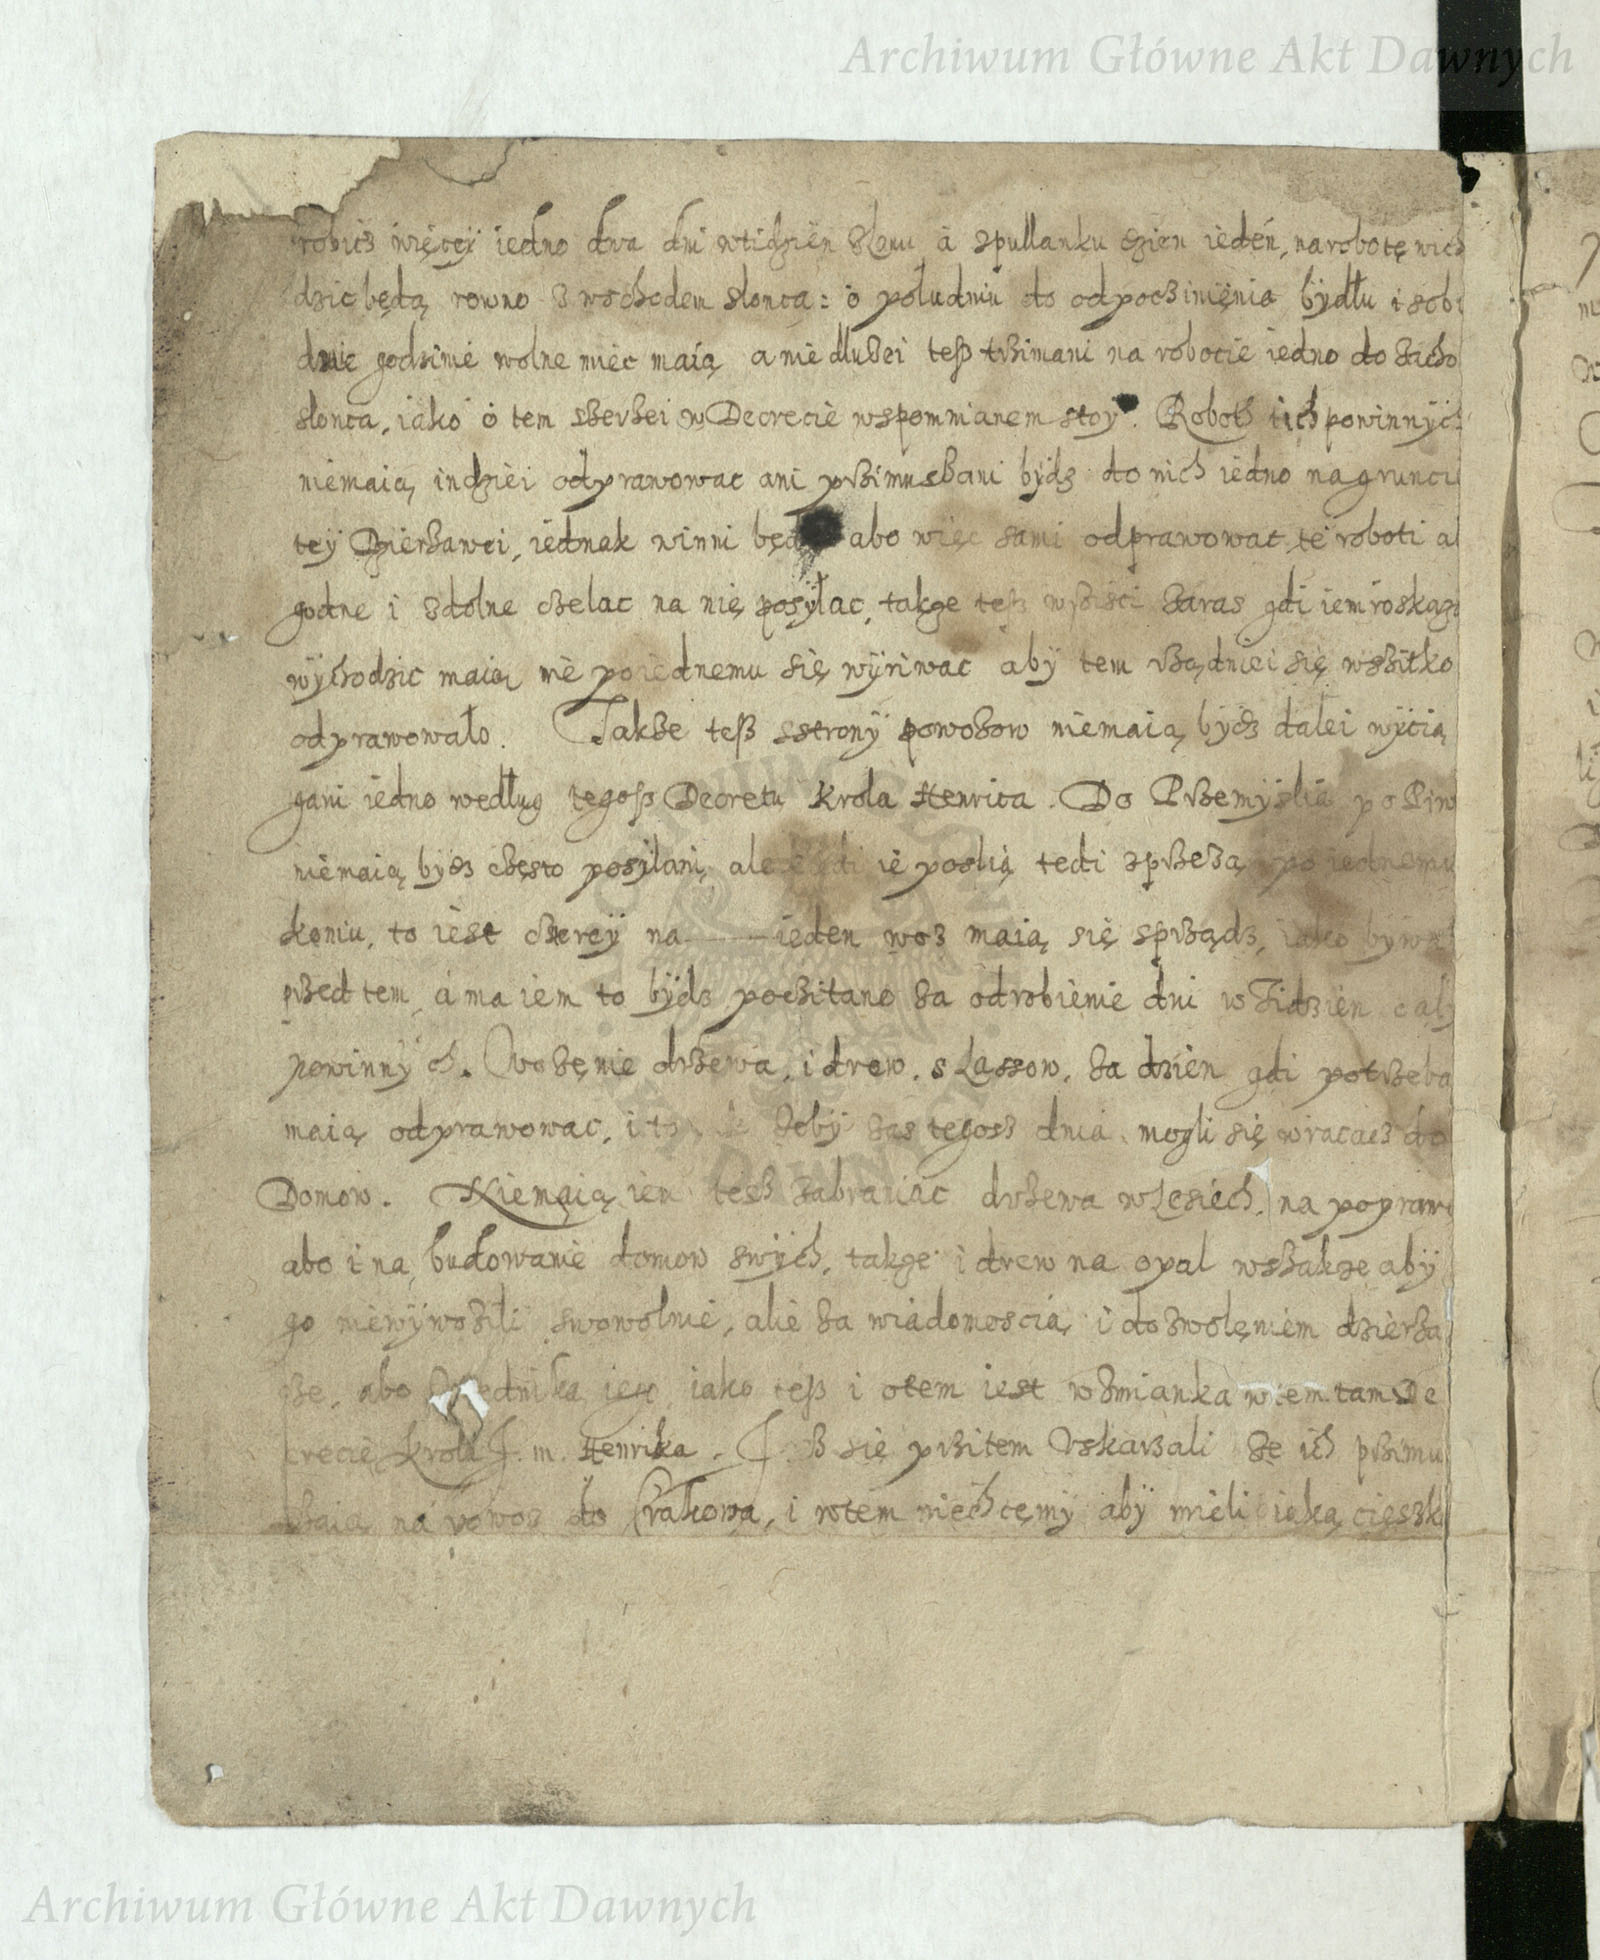 Archiwum Główne Akt Dawnych
robicz więceÿ iedno dwa dni wtidzien zlanu a zpullanku dzien ieden, narobotę wich
dzic będą rowno z wschodem slonca: o południu do odpoczinięnia bÿdłu i sobi
dwie godzinie wolne miec maią a nie dluzei tesz trzimani na robocie iedno do zacho
slonca, iako o tem szerzei w Decrecie wspomnianem stoy. Roboth ich powinnÿch
niemaią indziei odprawowac ani przimuszani bÿdz do nich iedno nagrunciu
teÿ Dzierzawei, iednak winni będą abo więc sami odprawowac te roboti a
godne i zdolne czelac na nię posÿłac, takze tesz wszisci zaras gdi iem roskaz
wÿchodzic maią nie poiednemu się wÿriwac abÿ tem rządniei się wszitko
odprawowało. Takze tesz sstronÿ powozow niemaią bÿdz dalei wÿcią
gani iedno według tegosz Decretu Krola Henrica. Do Przemÿslia po Piw
niemaią bÿdz często posÿlani, ale kiedi ie poslią tedi zprzezą po iednemu
koniu, to iest czterÿ na ieden woz maią się sprządz, iako bÿwa
przed tem, a ma iem to bÿdz poczitano za odrobienie dni w Tidzien całÿ
powinnÿch. Wozęnie drzewa, i drew, s Lassow, za dzien gdi potrzeba
maią odprawowac, i to zebÿ zas tegosz dnia mogli się wracacz do
Domow. Niemaią iem tesz zabraniac drzewa wLesiech, na popraw
abo i na budowanie domow swÿch, takze i drew na opal wszakze abÿ
go niewÿwozili swowolnie, alie za wiadomoscią i dozwolęniem dzierza
ze, abo Urzednika iego iako tesz i otem iest wzmianka wtem tam De
crecie Krola J. m. Henrika. Jsz się przitem Uskarzali ze ich przimu
szaią na powoz do Krakowa, i wtem niechcęmÿ abÿ mieli iaką cięszk
Archiwum Główne Akt Dawnych